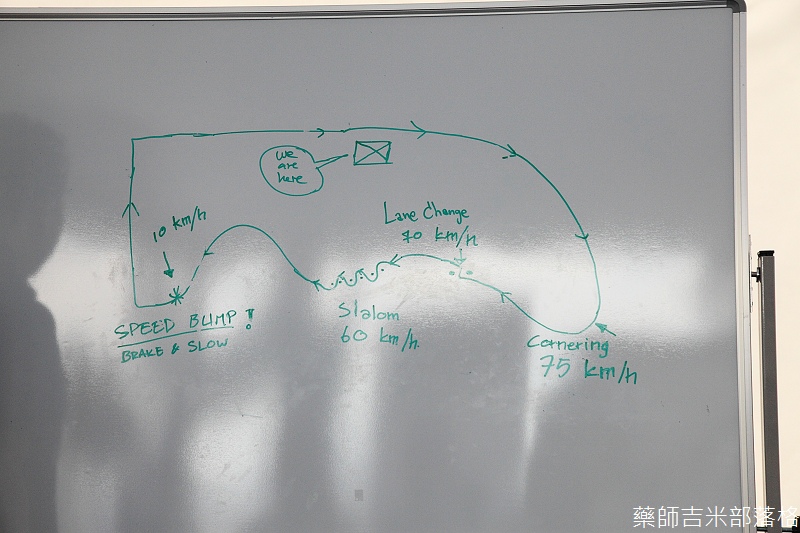 We
are
here
10 km/h
Lane Change
70 km/h
Slalom
60 km/h
SPEED BUMP!
BRAKE & SLOW
Cornering
75 km/h
藥師吉米部落格